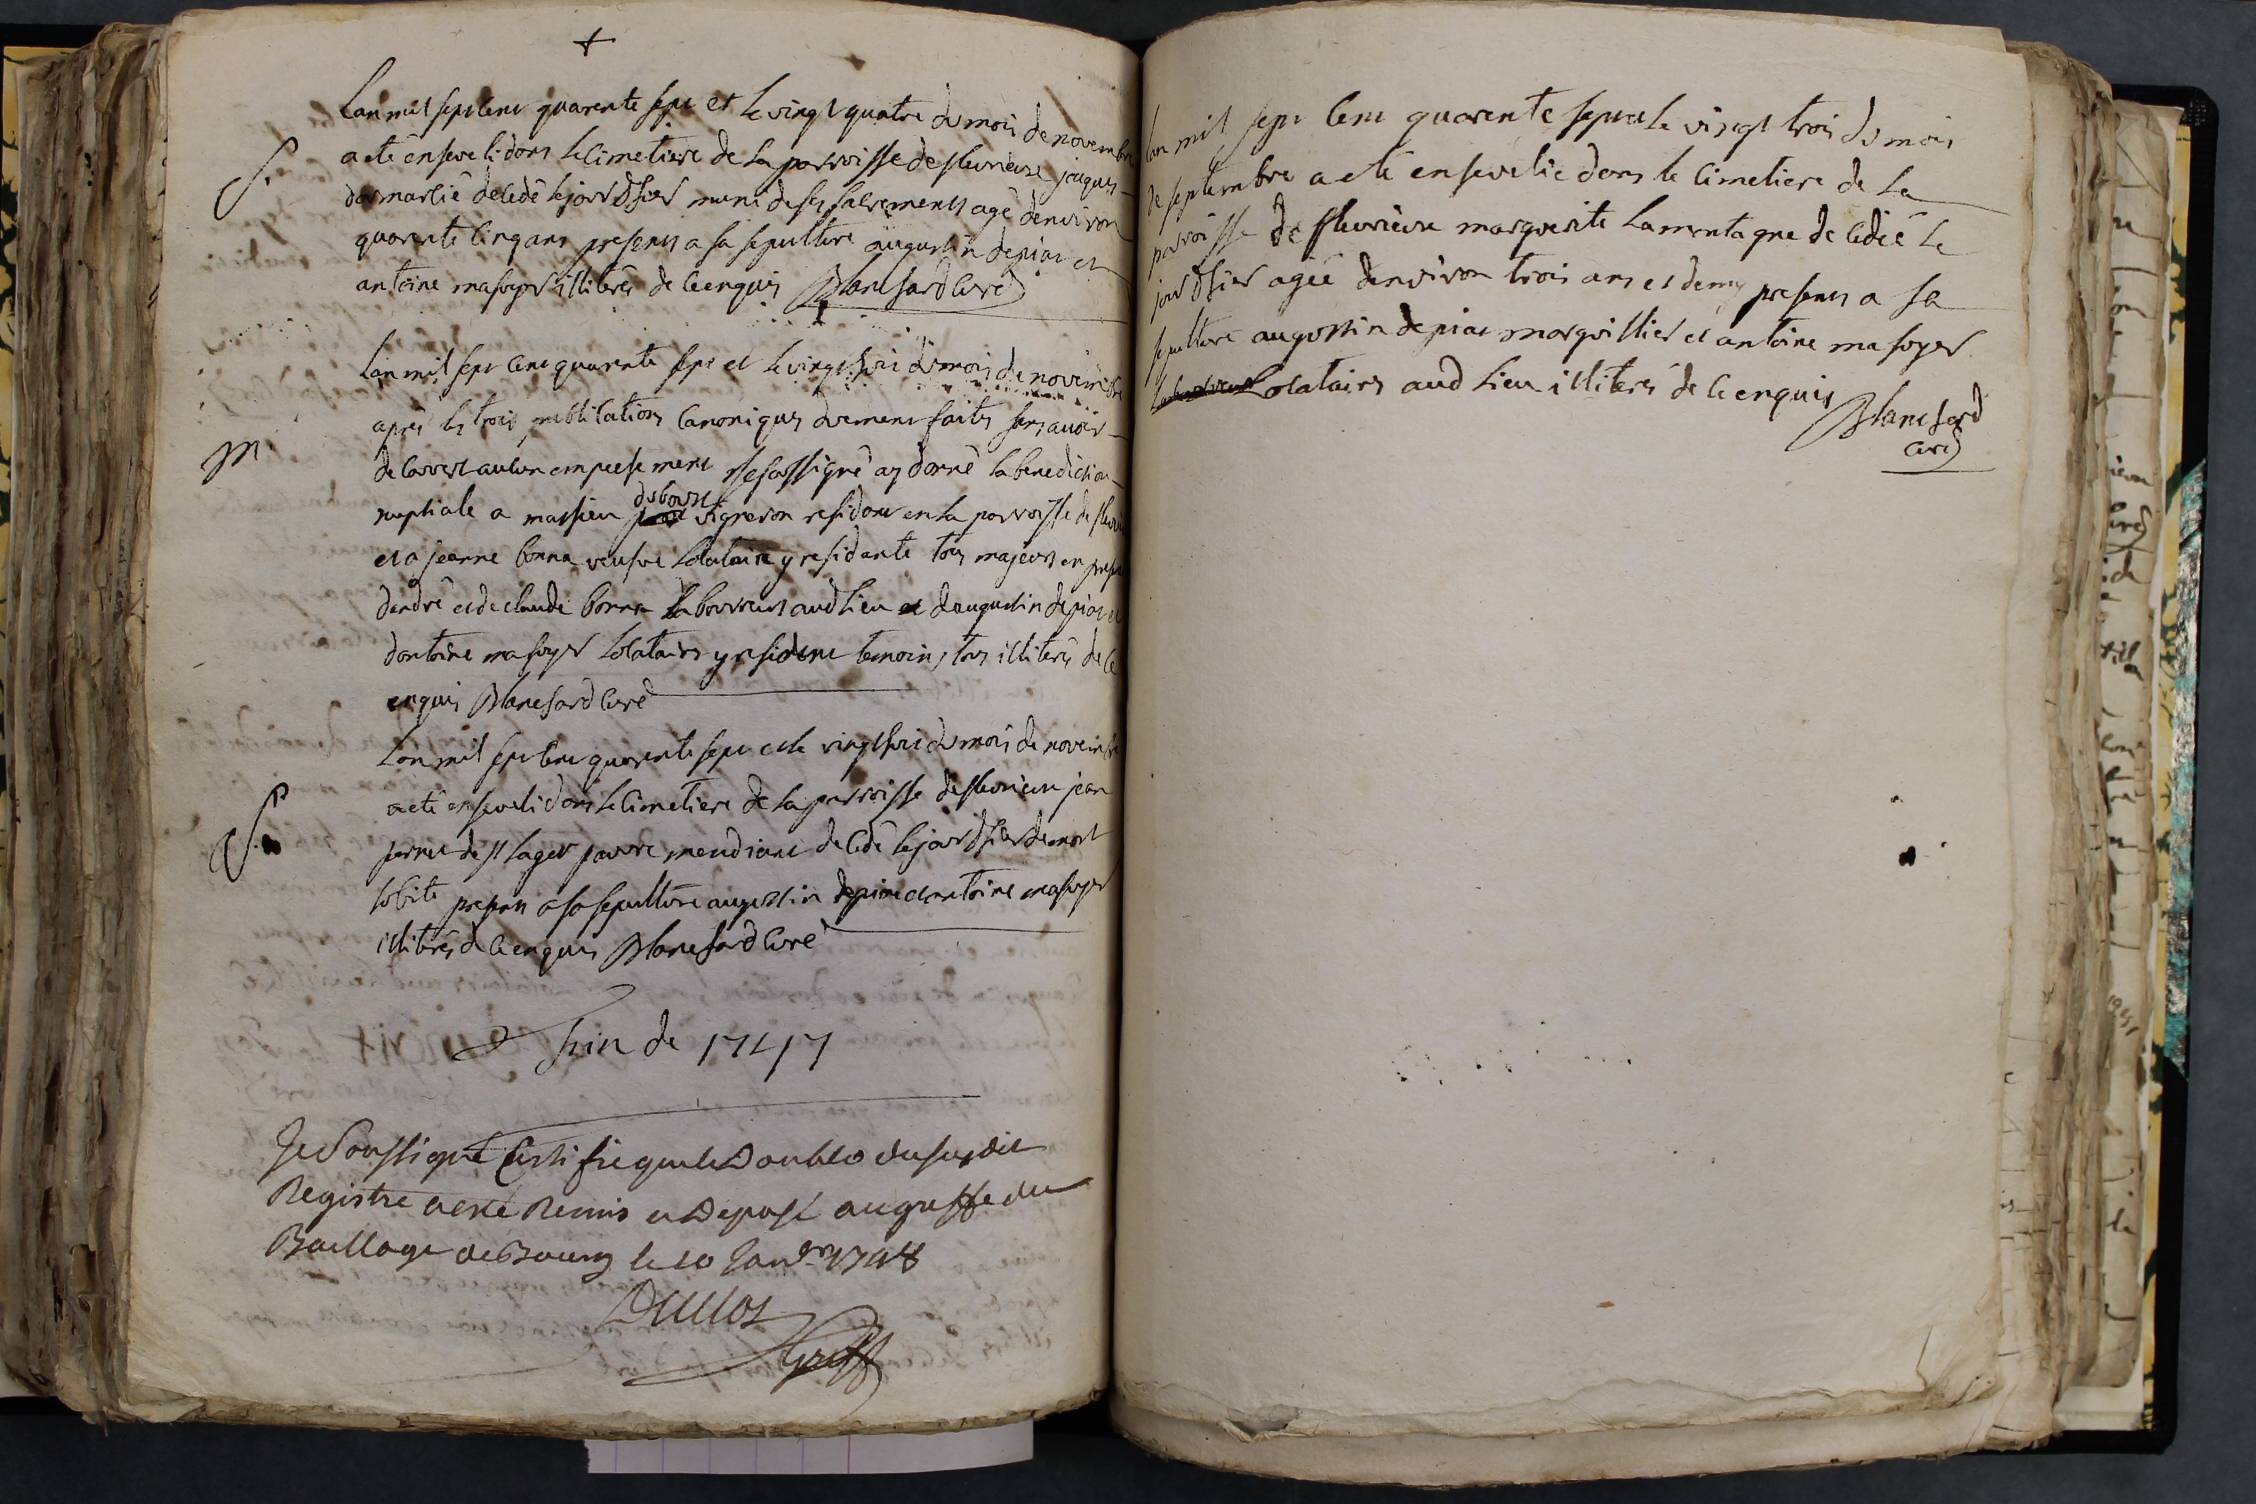 +
Lan mil sept cent quarente sept et le vingt quatre du mois de novembre
S. a ete enseveli dans le cimetiere de la parroisse de fleurieux jaques
dumarlié decedé le jour d'hier muni de ses sacrements agé denviron
quarente cinq ans presents a sa sepulture augustin depiat et
antoine masoyer illiterés de ce enquis Blanchard curé
Lan mil sept cent quarente sept et le vingt huit du mois de novembre
après les trois publications canoniques duement faites sans avoir
M. decouvert aucun empechement je soussigné ay donné la benediction
nuptiale a mathieu dubourt vigneron residant en la parroisse de fleurieu
et a jeanne bonna veufve locataire y residante tous majeurs en presence
dandré et de claude bonna laboureurs aud lieu et daugustin depiat et
dantoine masoyer locataires y residents temoins tous illiterés de ce
enquis Blanchard curé
Lan mil sept cent quarente sept et le vingt huit du mois de novembre
a ete enseveli dans le cimetiere de la parroisse de fleurieux jean
S. perret de st lager pauvre mendiant decedé le jour d'hier de mort
subite presents a sa sepulture augustin depiat et antoine masoyer
illiterés de ce enquis Blanchard curé
fin de 1747
Je Soussigné Certifie que le Double du susdit
Registre a esté Remis et Deposé au greffe du
Baillage de Bourg le 10 Janvr 1748
Duclos
Greff
Lan mil sept cent quarente sept et le vingt trois du mois
de septembre a ete ensevelie dans le cimetiere de la
parroisse de fleurieux marguerite lamontagne decedée le
jour d'hier agée denviron trois ans et demy presents a sa
sepulture augustin depiat marguillier et antoine masoyer
laboureurs locataires aud lieu illiterés de ce enquis
Blanchard
curé